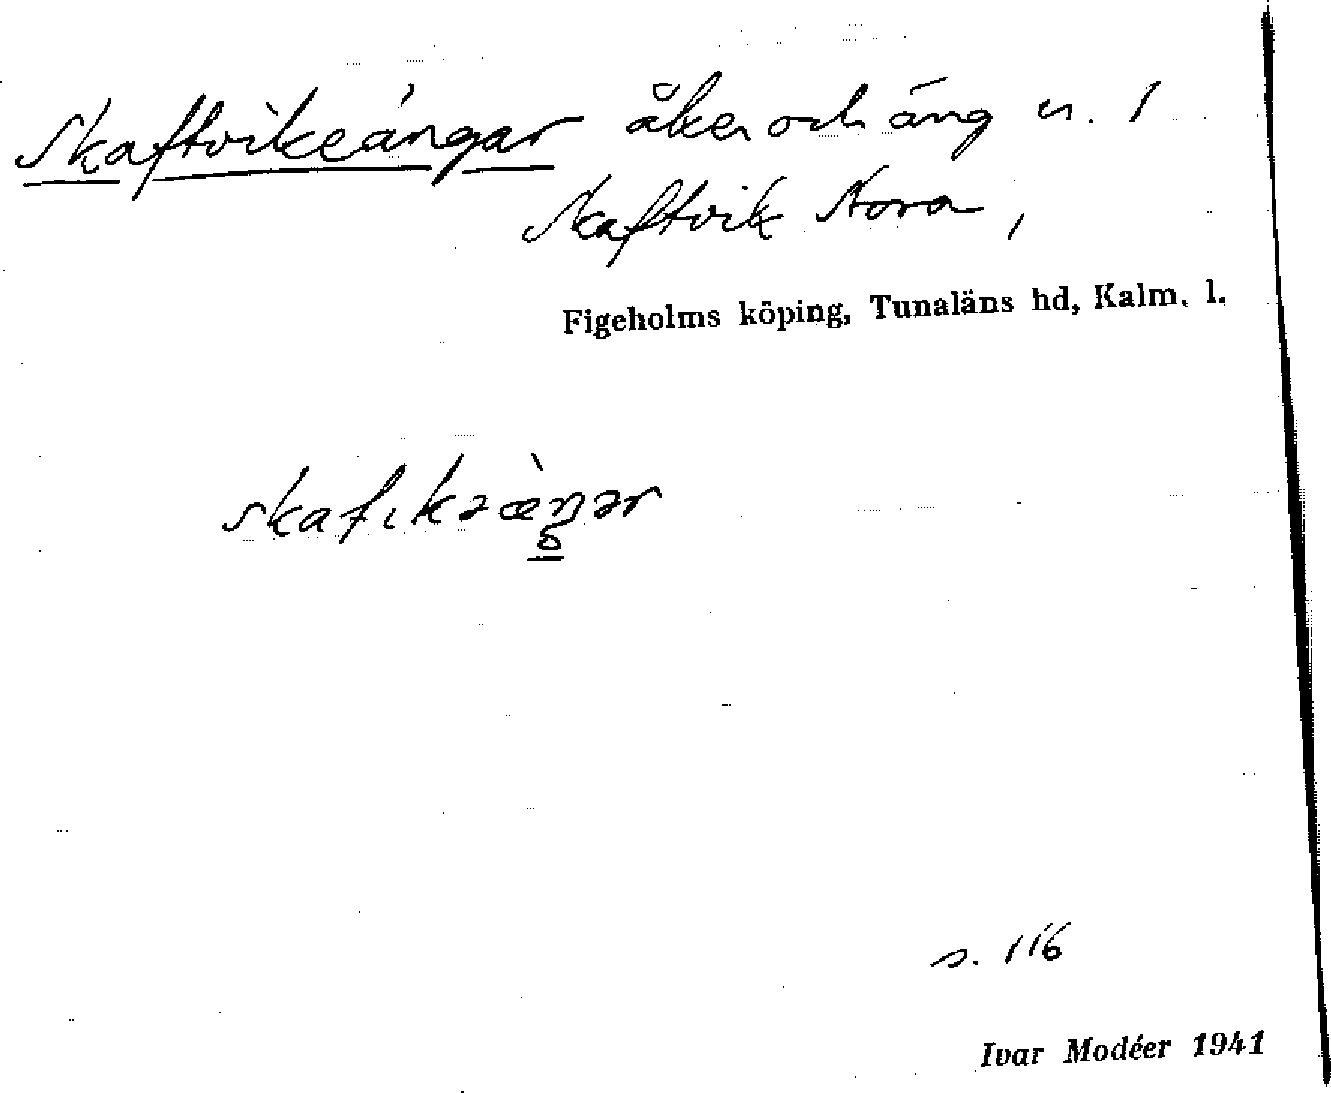 Skaftvikeängar åker och äng n. 1
Skaftvik Stora,
Figeholms köping, Tunaläns hd, Kalm. l.
skafıkəæ̀ŋər
s. 116
Ivar Modéer 1941